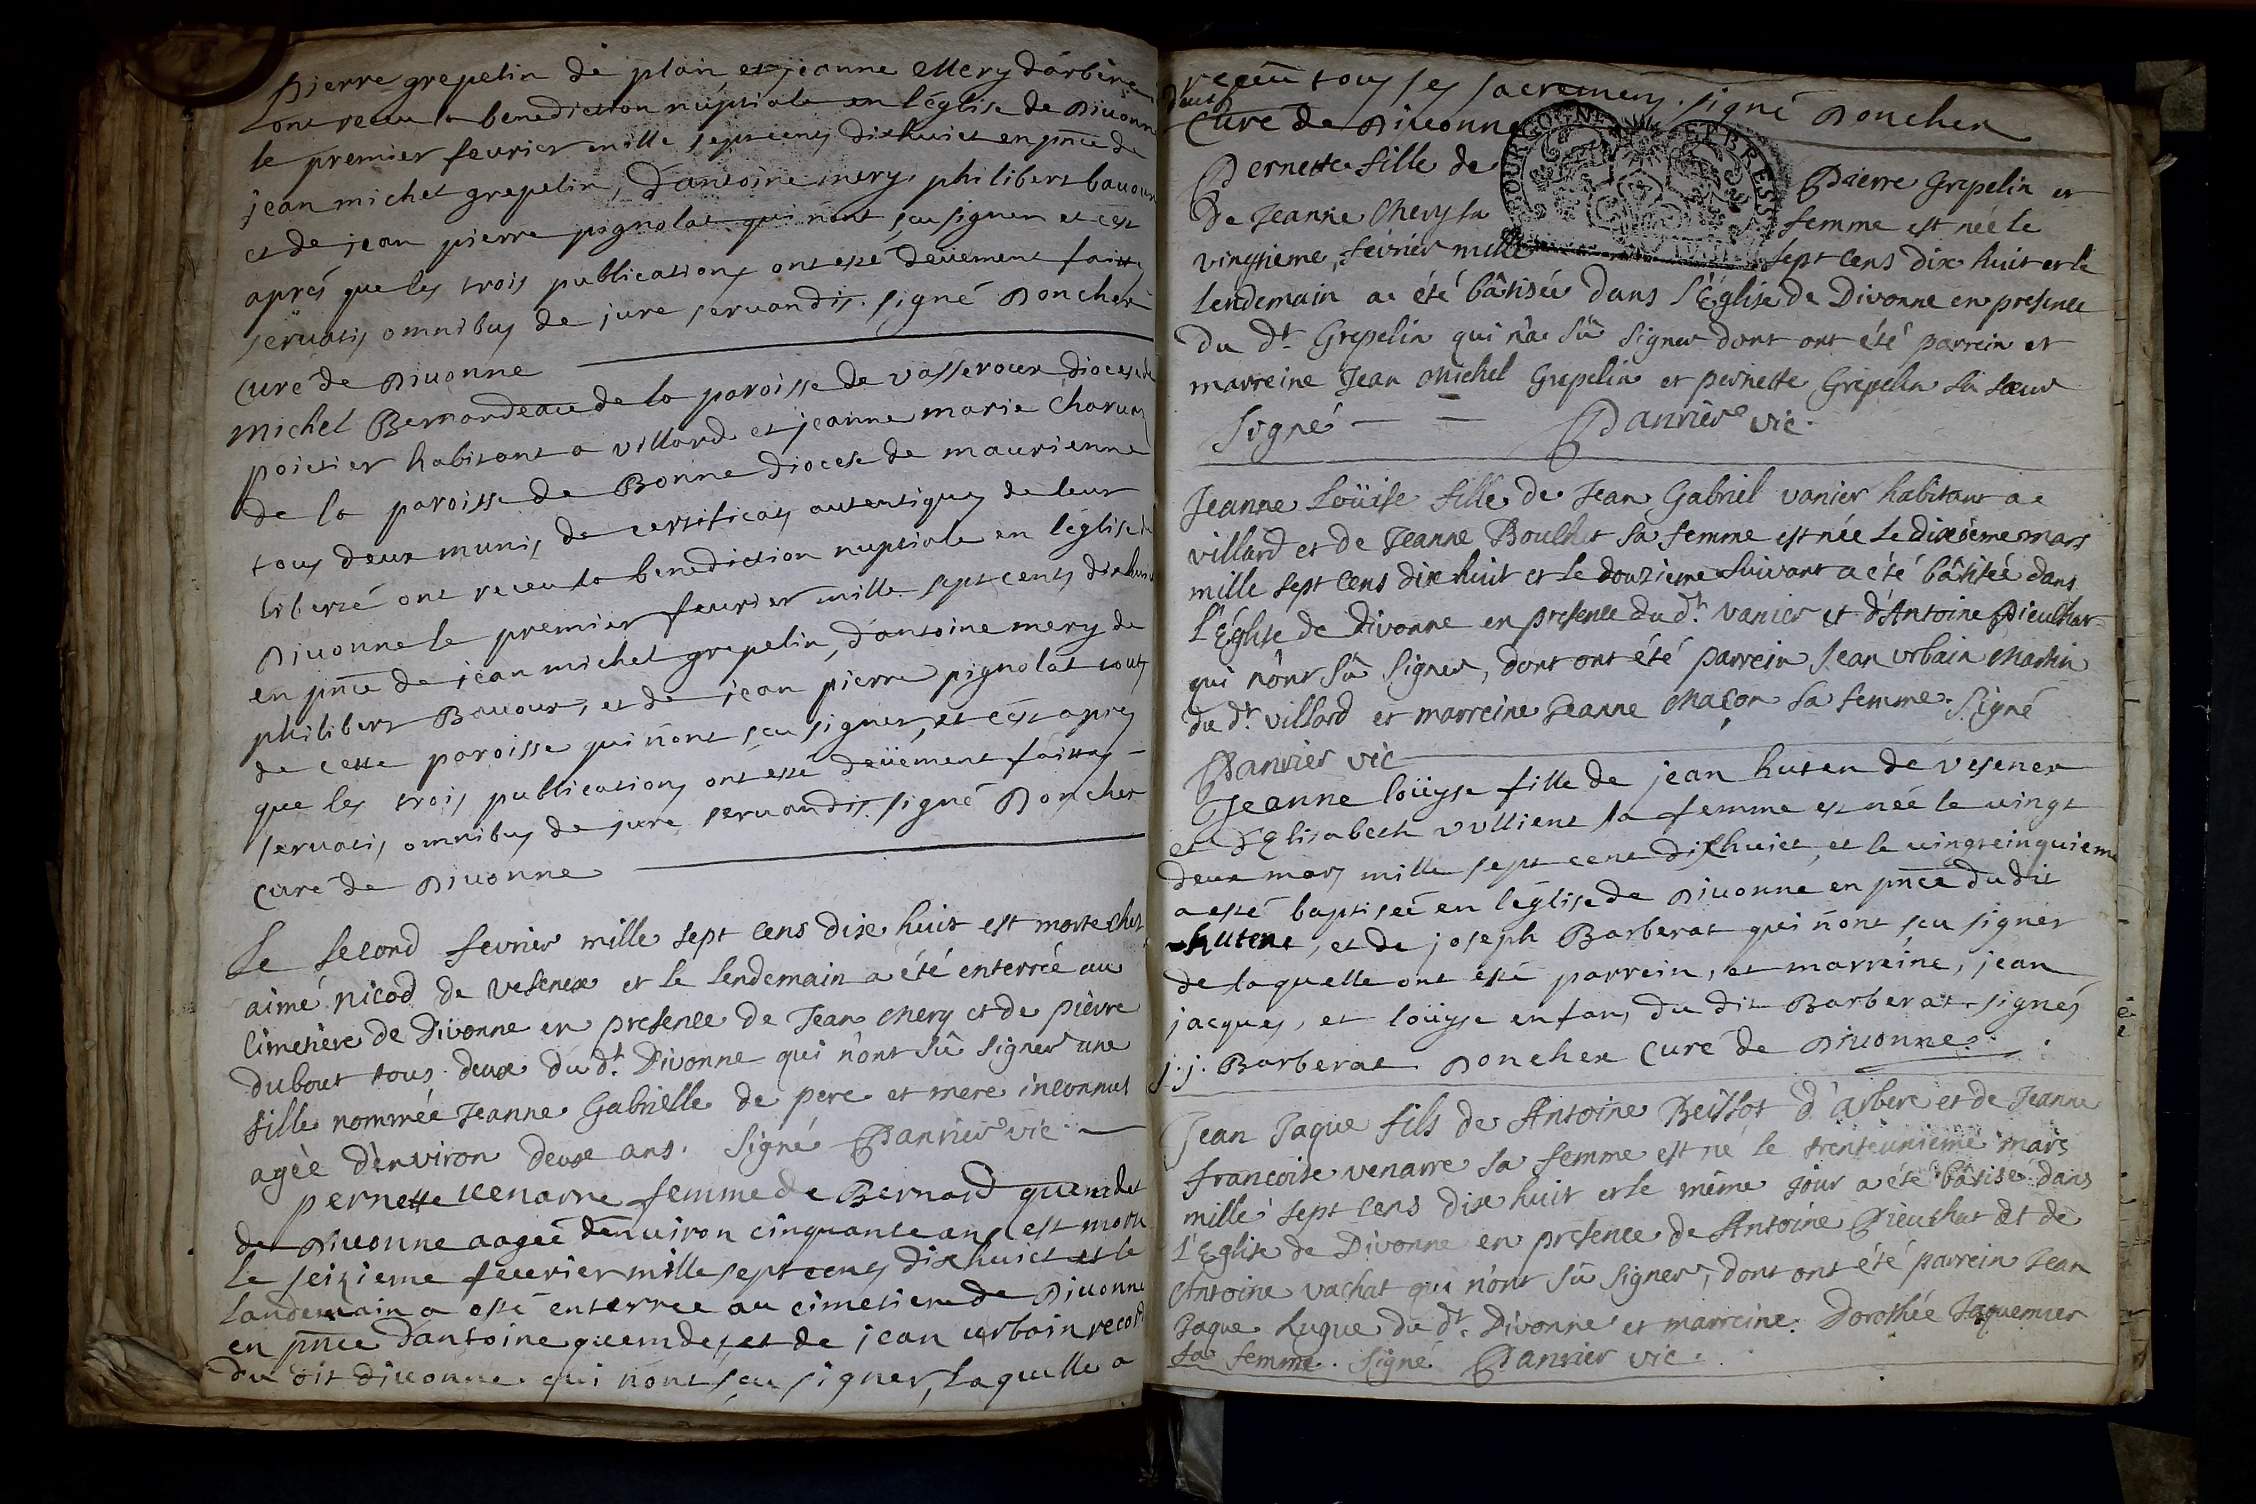 Pierre grepelin de plan et jeanne Mery d'arbere
ont receu la benediction nuptiale en l'église de Divonne
le premier feurier mille septcents dixhuict en pnce de
jean michel grepelin, d'antoine mery, philibert bauour
et de jean pierre pognolat qui n'ont sçu signer et c'est
aprés que les trois publications ont esté deüement faittes
servatis omnibus de jure servandis. signé Poncher
curé de Divonne
Michel Bernardeau de la paroisse de vasseroux diocese de
poitier habitant a villard et jeanne marie Charuay
de la paroisse de Bonne diocese de maurienne
tous deux munis de certificats autentiques de leur
liberté ont receu la benediction nuptiale en l'église de
Divonne le premier feurier mille sept cents dixhuict
en pnce de jean michel grepelin, d'antoine mery de
philibert Bauour, et de jean pierre pignolat touts
de cette paroisse qui n'ont sçu signer, et c'est apres
que les trois publications ont esté deüement faittes
servatis omnibus de jure servandis. signé Poncher
curé de Divonne
Le second fevrier mille sept cens dixe huit est morte chez
aimé nicod de vesenex et le lendemain a été enterrée au
cimetière de Divonne en presence de Jean Mery et de piérre
dubout tous deux du dt. Divonne qui n'ont sû signer une
fille nommée Jeanne Gabrielle de pere et mere inconnus
agée d'environ deux ans. Signé Panrier vic.
pernette uenarre femme de Bernard
de Divonne aagée denuiron cinquante ans est morte
le seizieme feurier mille sept cents dixhuict et le
landemain a esté enterree au cimetiere de Divonne
en pnce d'antoine et de jean urbain record
du dit diuonne qui n'ont sçu signer, laquelle a
receu tous ses sacremens. signé Poncher
Curé de Divonne
BOURGOGNE ET BRESSE
Pernette fille de Pierre Grepelin et
de Jeanne Mery sa femme est née le
vingtieme fevrier mille sept cens dix huit et le
lendemain a été bâtisée dans l'Église de Divonne en presence
du dt. Grepelin qui n'a sû signer dont ont été parrein et
marreine Jean Michel Grepelin et pernette Grepelin sa sœur
Signé — — Panrier vic.
Jeanne Loüise fille de Jean Gabriel vanier habitant a
villard et de Jeanne Boulhet sa femme est née le dixième mars
mille sept cens dixe huit et le douzieme suivant a été bâtisée dans
l'Église de Divonne en presence du dt. vanier et d'Antoine Pieulhar
qui n'ont sû signer, dont ont été parrein Jean urbain Martin
du dt. villard et marreine Jeanne Maçon sa femme. Signé
Panrier vic
Jeanne loüyse fille de jean huten de vesenex
et d'Elisabeth vulliens sa femme est née le vingt
deux mars mille sept cent dixhuict, et le vingtcinquieme
a esté baptiseé en l'église de Divonne en pnce du dit
hutene, et de joseph Barberat qui n'ont sçu signer
de laquelle ont esté parrein, et marreine, jean
jacques, et loüyse enfans du dit Barberat. signés
j.j. Barberat Poncher Curé de Divonne.
Jean Jaque fils de Antoine Beissot d'arbere et de Jeanne
francoise venarre sa femme est né le trenteunieme mars
mille sept cens dixe huit et le même jour a été bâtisé dans
l'Eglise de Divonne en presence de Antoine Pieulhat et de
Antoine vachat qui n'ont sû signer, dont ont été parrein Jean
Jaque Luque du dt. Divonne et marreine Dorothée Jaquemier
sa femme. Signé Panrier vic.